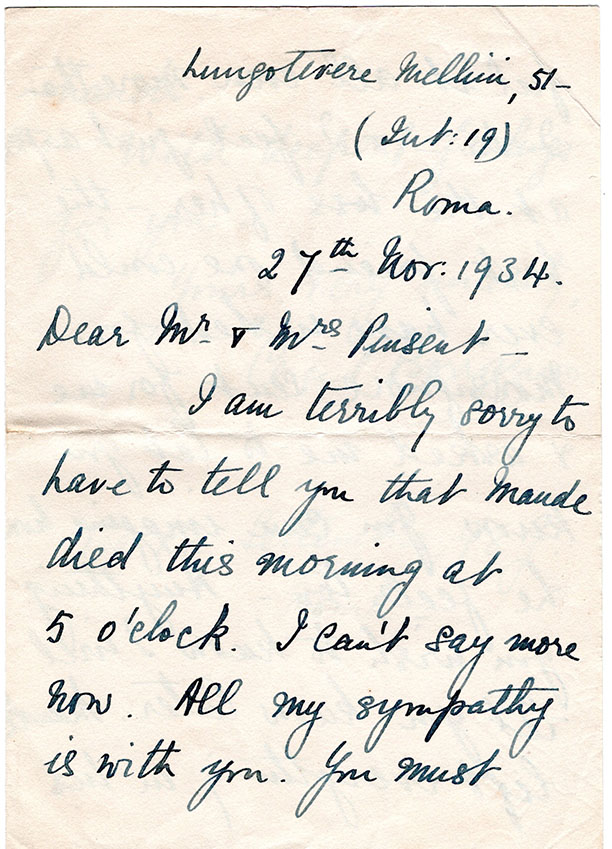 Lungotevere Mellini, 51-
(Int: 19)
Roma.
27th Nov: 1934.
Dear Mr & Mrs Pinsent -
I am terribly sorry to
have to tell you that Maude
died this morning at
5 o'clock. I can't say more
now. All my sympathy
is with you. You must